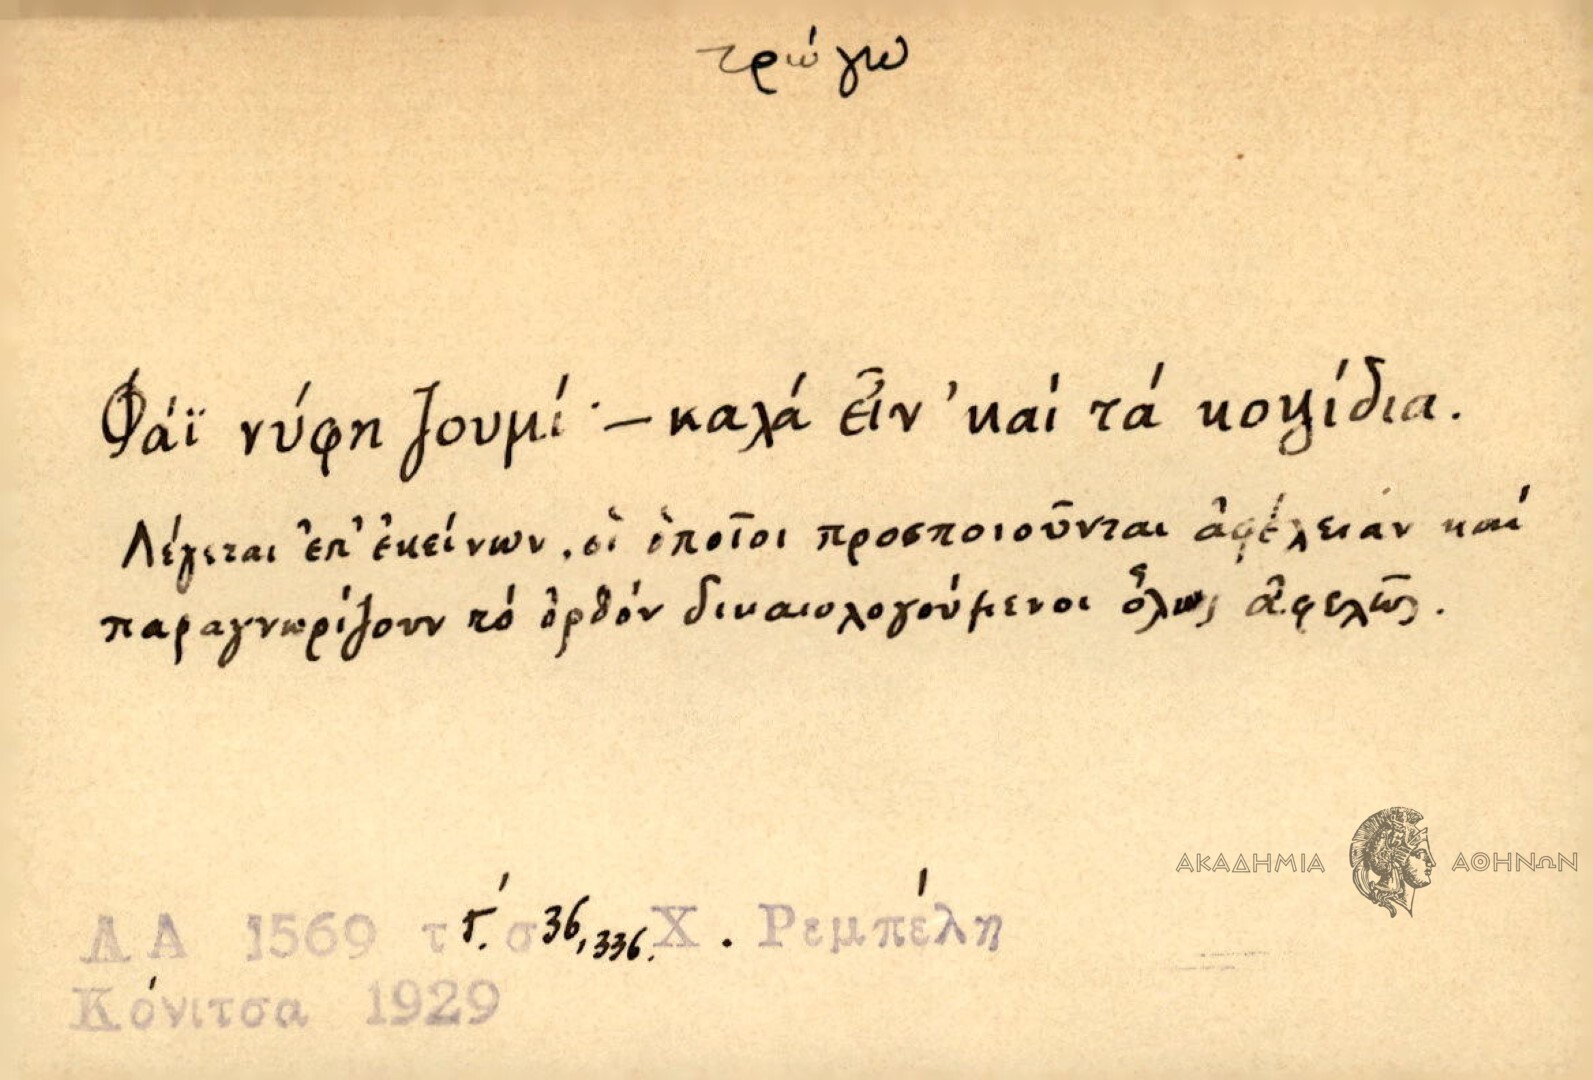 τρώγω
Φάϊ νύφη ζουμί· – καλά εἶν' καί τά κοψίδια.
Λέγεται ἐπ' ἐκείνων, οἱ ὁποῖοι προσποιοῦνται ἀφέλειαν καί
παραγνωρίζουν τό ὀρθόν δικαιολογούμενοι ὅλως ἀφελῶς.
ΑΚΑΔΗΜΙΑ ΑΘΗΝΩΝ
ΛΑ 1569 τ Γ́. σ 36, 336. Χ. Ρεμπέλη
Κόνιτσα 1929